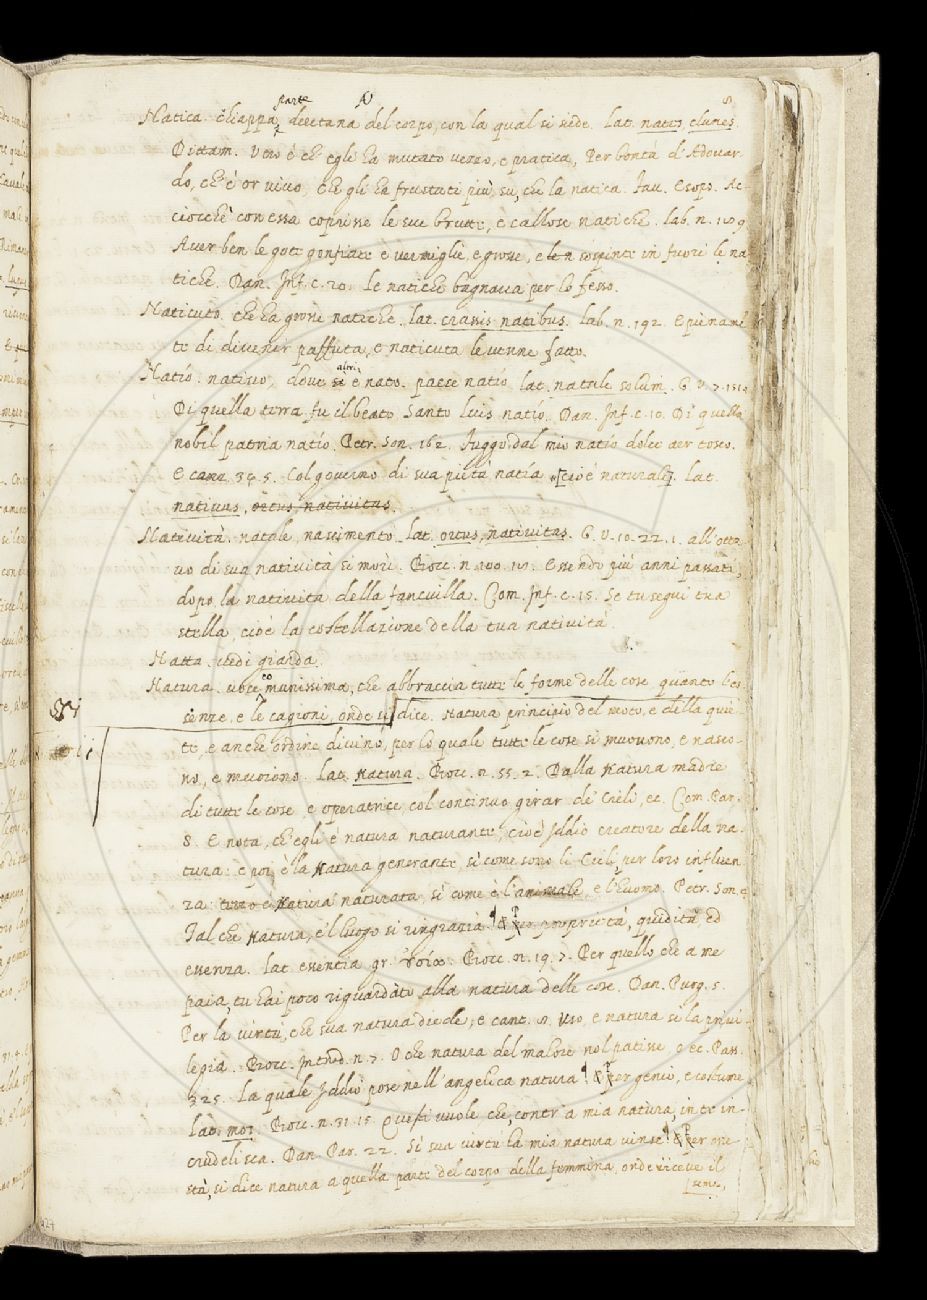 parte
Natica. chiappa, deretana del corpo, con la qual si siede. Lat. nates, clunes.
Dittam. Vero è ch' egli ha mutato verso, e pratica, Per bontà di Adouar
do, ch' è or viuo, che gli ha frustati più su, che la natica. Fau. Esopo. Ac-
ciocchè con essa coprisse le sue brutte, e callose natiche. lab. n. 119
Auer ben le gote gonfiate e vermiglie, e grosse, e sospinte in fuori le na
tiche. Dan. Inf. c. 20. Le natiche bagnaua per lo fesso.
Naticuto. che ha grosse natiche. lat. crassis natibus. lab. n. 192. E pienamẽ
te di diuenir paffuta, e naticuta le venne fatto.
altri
Natío. natiuo, doue si è nato. paese natío. lat. natale solum. G. V. 7. 151.
Di quella terra fu il beato Santo Luis natío. Dan. Inf. c. 10. Di quella
nobil patria natío. Petr. Son. 162. Fuggo dal mio natío dolce aer tosco.
E canz. 39. 5. Col gouerno di sua pietà natía [cioè naturale]. Lat.
natiuus, ortus, natiuitas.
Natiuità. natale, nascimento. Lat. ortus, natiuitas. G. V. 10. 22. 1. all' otta
uo di sua natiuità si morì. Bocc. n. 100. Essendo più anni passati,
dopo la natiuità della fanciulla. Com. Inf. c. 15. Se tu segui tua
stella, cioè la costellazione della tua natiuità.
Natta. vedi giarda.
Natura. voce comunissima, che abbraccia tutte le forme delle cose quanto l' es
senze, e le cagioni, onde si dice. Natura principio del moto, e della quie-
te, e anche ordine diuino, per lo quale tutte le cose si muouono, e nasco-
no, e muoiono. Lat. Natura. Bocc. n. 55. 2. Dalla Natura madre
di tutte le cose, e operatrice col continuo girar de' Cieli, ec. Com. Par.
8. E nota, ch' egli è natura naturante, cioè Iddio creatore della na-
tura: e poi è la Natura generante, sì come sono li Cieli per loro influen
za: Natura naturata, sì come è l' animale, e l' huomo. Petr. Son.
Tal che Natura, e 'l luogo si ringrazia ¶ & per proprietà, quidità, ed
essenza. Lat. essentia gr. Bocc. n. 19. 7. Per quello che a me
paia, tu hai poco riguardato alla natura delle cose. Dan. Purg. 5.
Per la virtù, che sua natura diede, e cant. Uso, e natura sì la priui
legia. Bocc. Introd. n. 7. O che natura del malore nol patisse o ec. Pass.
325. La quale Iddio pose nell' angelica natura ¶ & Per genio, e costume
Lat. mos. Bocc. n. 31. 15. Questi vuole che, contr' a mia natura, in te in-
crudelisca. Dan. Par. 22. Sì sua virtù la mia natura vinse ¶ & Per one
stà, si dice natura a quella parte del corpo della femmina, onde riceue il
seme,